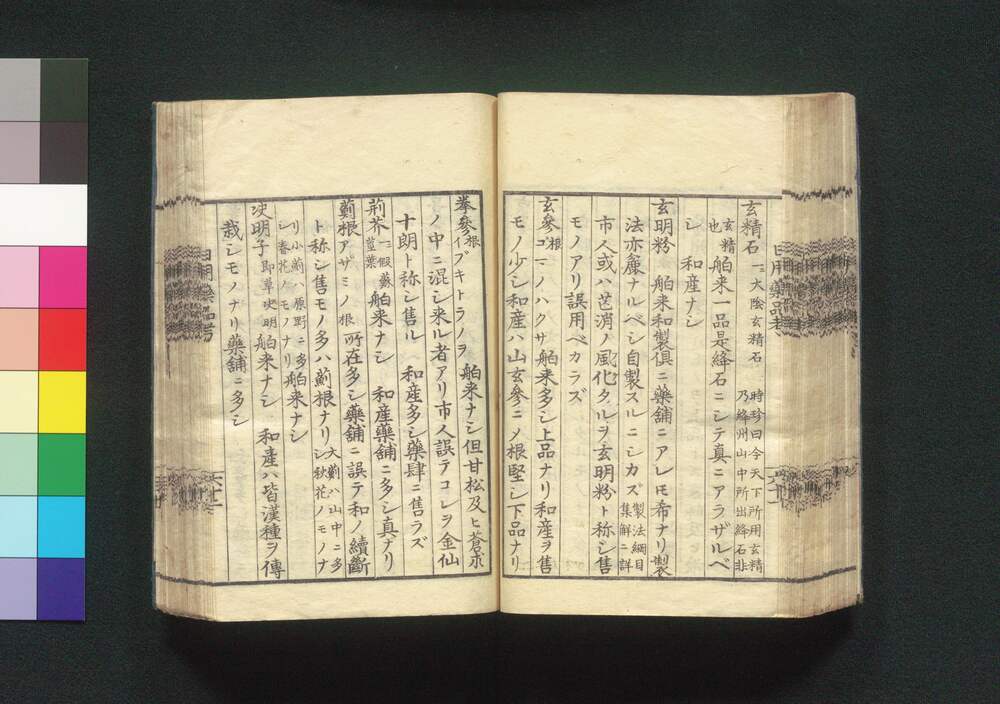 玄精石 一ニ太陰玄精石 時珍曰今天下所用玄精
乃絳州山中所出絳石非
玄精也 舶来一品是絳石ニシテ真ニアラザルベ
シ 和産ナシ
玄明粉 舶来和製倶ニ藥舗ニアレㇳモ希ナリ製
法亦麤ナルベシ自製スルニシカズ 製法綱目集解ニ詳
市人或ハ芒消ノ風化タルヲ玄明粉ト称シ售
モノアリ誤用ベカラズ
玄參 根 ゴマノハクサ 舶来多シ上品ナリ和産ヲ售
モノ少シ和産ハ山玄參ニメ根堅シ下品ナリ
日用藥品考
拳參 根 イブキトラノヲ 舶来ナシ但甘松及ヒ蒼朮
ノ中ニ混シ来ル者アリ市人誤テコレヲ金仙
十朗ト称シ售ル 和産多シ藥肆ニ售ラズ
荊芥 一ニ假蘇 莖葉 舶来ナシ 和産藥舗ニ多シ真ナリ
薊根 アザミノ根 所在多シ藥舗ニ誤テ和ノ續斷
ト称シ售モノ多ハ薊根ナリ 大薊ハ山中ニ多シ秋花ノモノナ
リ小薊ハ原野ニ多シ春花ノモノナリ 舶来ナシ
决明子 即草决明 舶来ナシ 和産ハ皆漢種ヲ傳
栽シモノナリ藥舗ニ多シ
日用藥品考